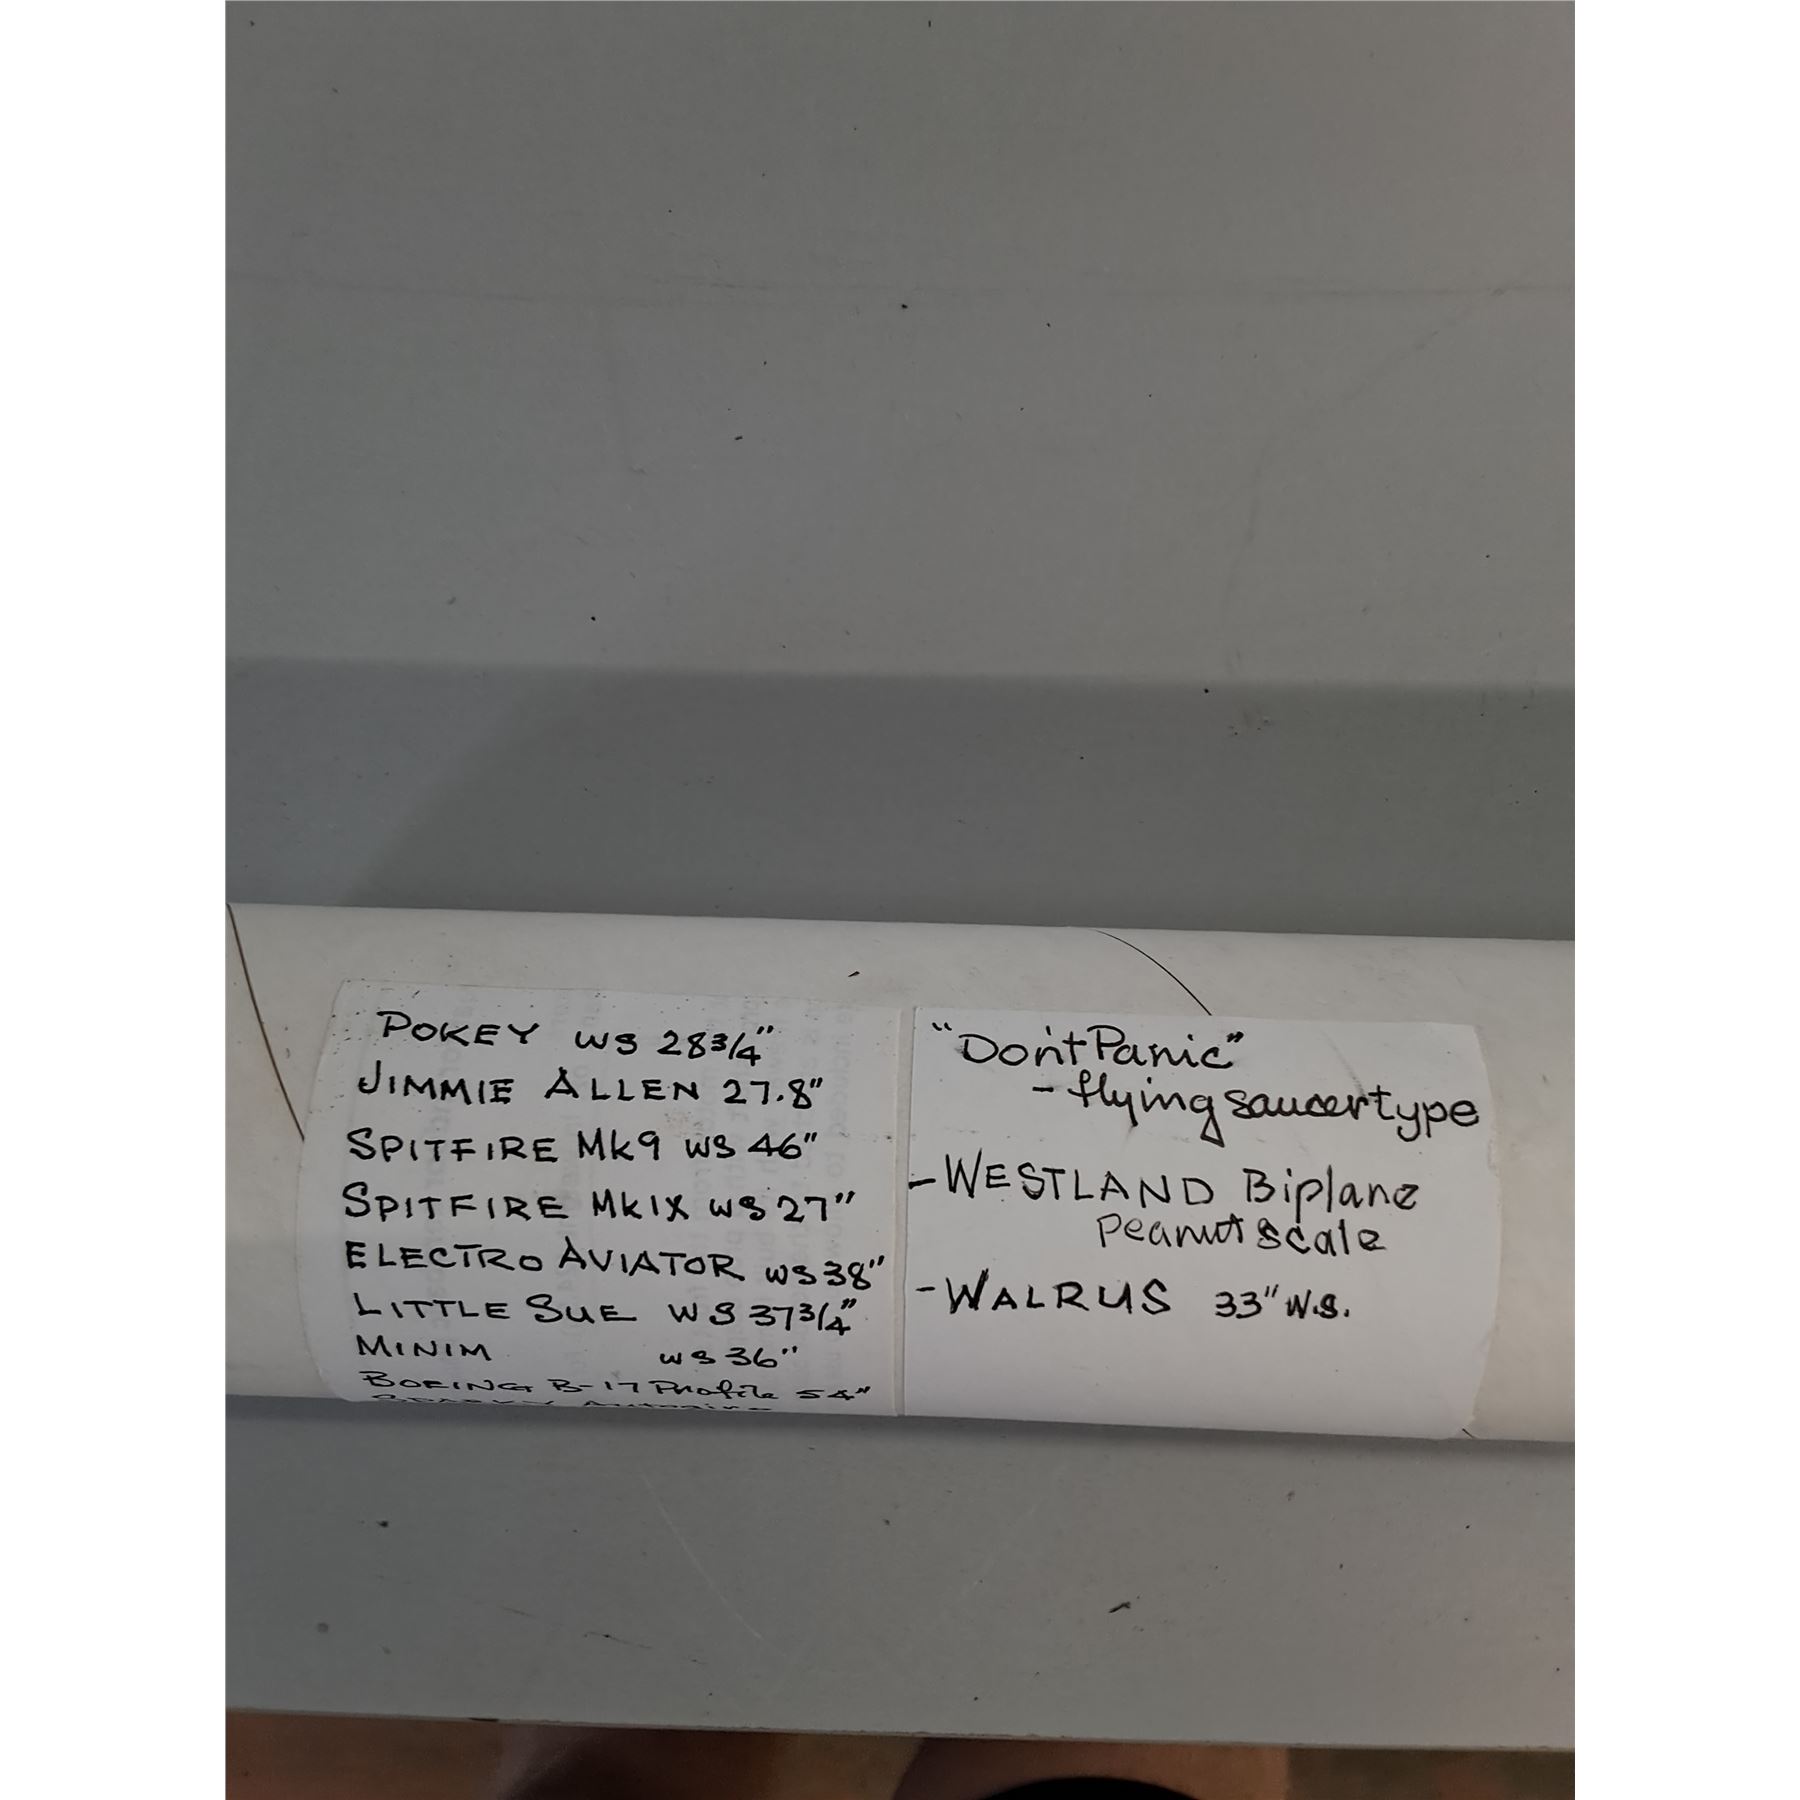 POKEY WS 28 3/4"
JIMMIE ALLEN 27.8"
SPITFIRE Mk9 WS 46"
SPITFIRE MkIX WS 27"
ELECTRO AVIATOR WS 38"
LITTLE SUE WS 37 3/4"
MINIM WS 36"
BOEING B-17 Profile 54"
"Don't Panic"
- flying saucer type
- WESTLAND Biplane
Peanut Scale
- WALRUS 33" W.S.